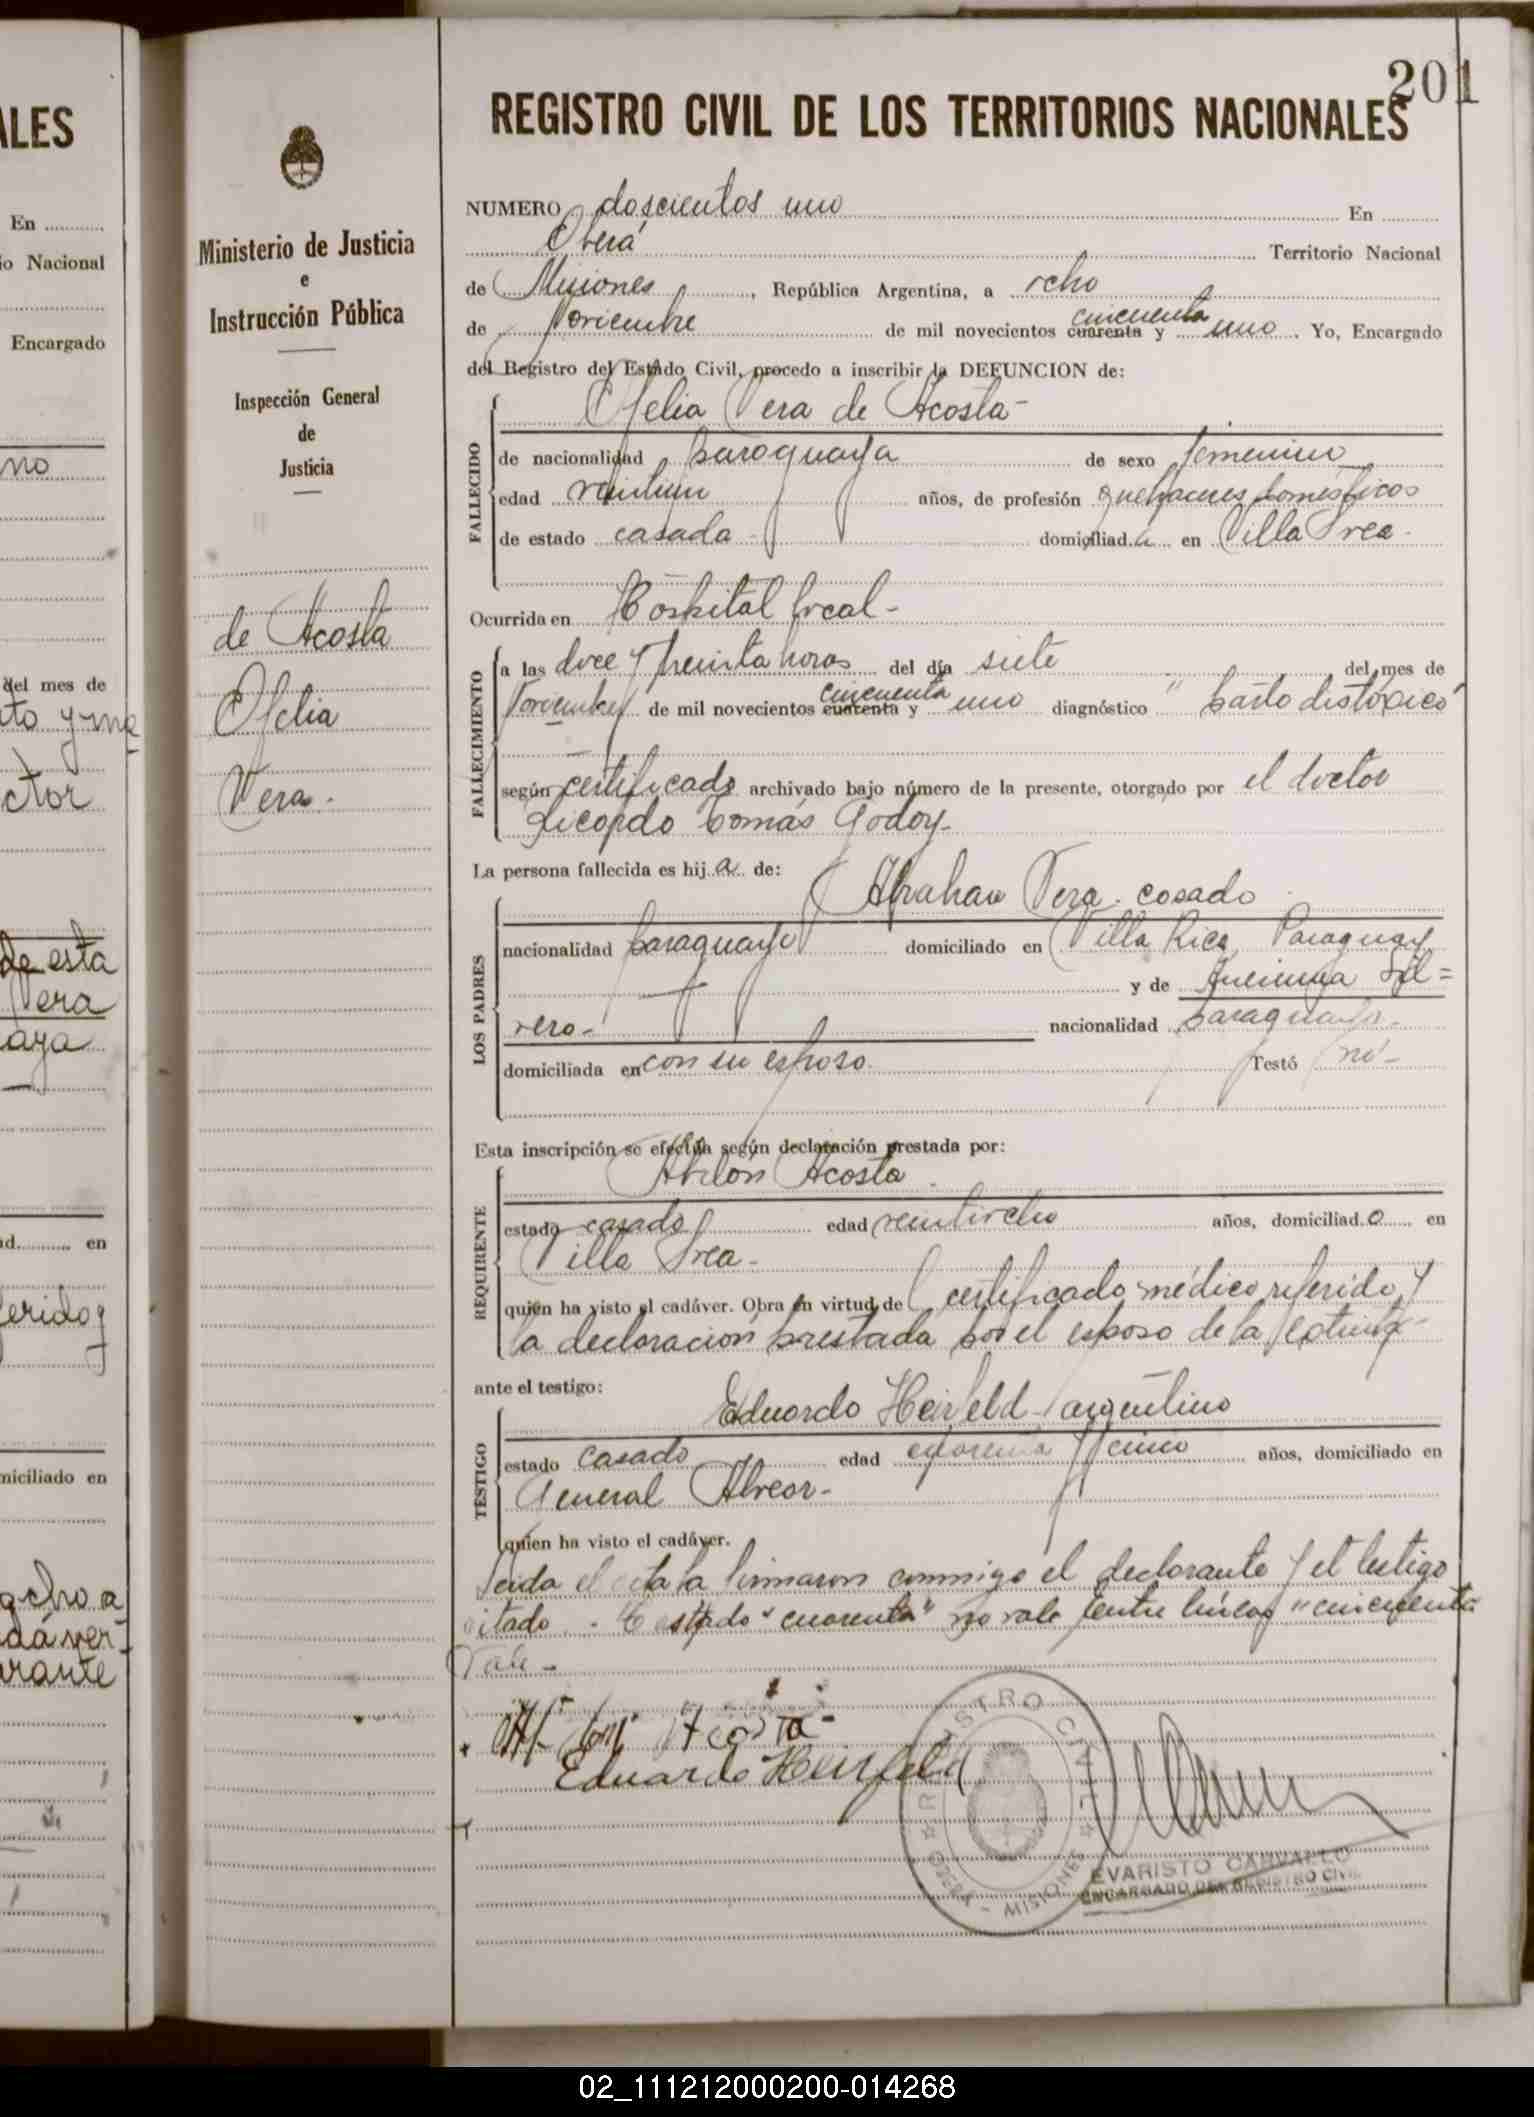 201
REGISTRO CIVIL DE LOS TERRITORIOS NACIONALES
Ministerio de Justicia
e
Instrucción Pública
Inspección General
de
Justicia
de Acosta
Ofelia
Vera.-
NUMERO doscientos uno En
Oberá Territorio Nacional
de Misiones, República Argentina, a ocho
de Noviembre de mil novecientos cuarenta y cincuenta uno. Yo, Encargado
del Registro del Estado Civil, procedo a inscribir la DEFUNCION de:
Ofelia Vera de Acosta-
FALLECIDO
de nacionalidad paraguaya de sexo femenino
edad veintiun años, de profesión quehaceres domésticos
de estado casada - domiciliad.a en Villa Svea.
Ocurrida en Hospital local-
FALLECIMIENTO
a las doce y treinta horas del día siete del mes de
Noviembre de mil novecientos cuarenta y cincuenta uno diagnóstico "parto distócico"
según certificado archivado bajo número de la presente, otorgado por el doctor
Ricardo Tomás Godoy-
La persona fallecida es hij.a. de:
LOS PADRES
Abrahan Vera. casado
nacionalidad paraguayo domiciliado en Villa Rica, Paraguay
y de
rero- nacionalidad paraguaya.
domiciliada en con su esposo. Testó no-
Esta inscripción se efectúa según declaración prestada por:
REQUIRENTE
Abdón Acosta
estado casado edad veintiocho años, domiciliad.o en
Villa Svea-
quien ha visto el cadáver. Obra en virtud de certificado médico referido y
la declaración prestada por el esposo de la extinta-
ante el testigo:
TESTIGO
Eduardo Heirfeld argentino
estado casado edad cuarenta y cinco años, domiciliado en
General Alvear-
quien ha visto el cadáver.
Leida el acta la firmaron conmigo el declarante y el testigo
citado.- Testado "cuarenta" no vale entre líneas "cincuenta
Vale-
Acosta-
Eduardo Heirfeld
REGISTRO CIVIL
OBERA - MISIONES
EVARISTO CARVALLO
ENCARGADO DEL REGISTRO CIVIL
ALES
En
io Nacional
Encargado
no
del mes de
ctor
de esta
Vera
aya
ad. en
ferido y
miciliado en
ocho a
dáver-
arante
02_111212000200-014268